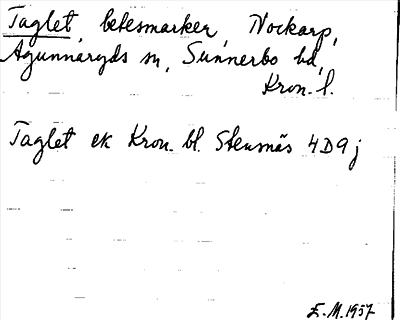 Taglet, betesmarker, Nockarp,
Agunnaryds sn, Sunnerbo hd,
Kron. l.
Taglet ek Kron. bl. Stensnäs 4D9j
E.M. 1957